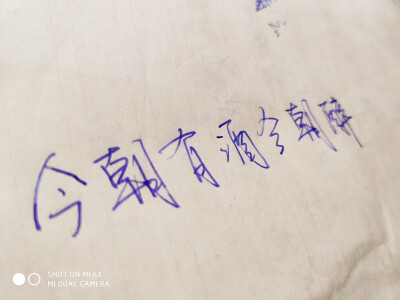 今朝有酒今朝醉
SHOT ON MI 6X
MI DUAL CAMERA